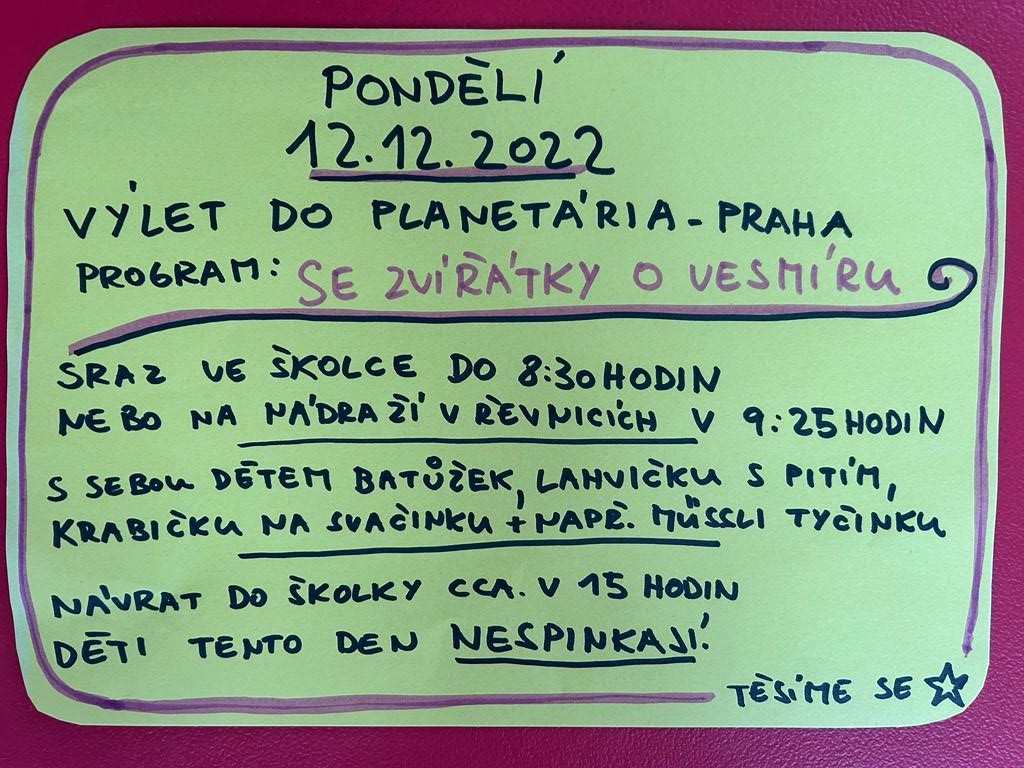 PONDĚLÍ
12.12.2022
VÝLET DO PLANETÁRIA - PRAHA
PROGRAM: SE ZVÍŘÁTKY O VESMÍRU
SRAZ VE ŠKOLCE DO 8:30 HODIN
NEBO NA NÁDRAŽÍ V ŘEVNICÍCH V 9:25 HODIN
S SEBOU DĚTEM BATŮŽEK, LAHVIČKU S PITÍM,
KRABIČKU NA SVAČINKU + NAPŘ. MÜSSLI TYČINKU
NÁVRAT DO ŠKOLKY CCA. V 15 HODIN
DĚTI TENTO DEN NESPINKAJÍ!
TĚŠÍME SE